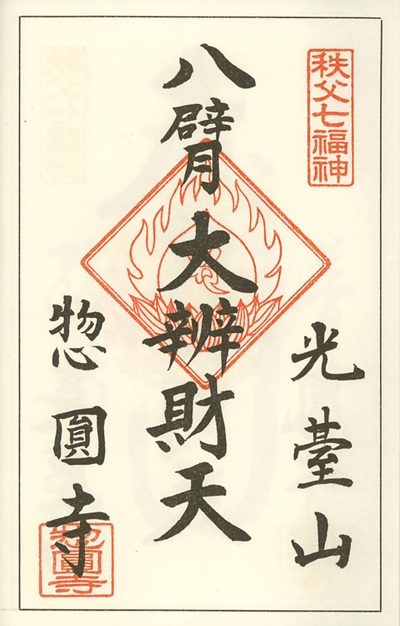 秩父七福神
光臺山
八臂大辨財天
惣圓寺
惣圓寺